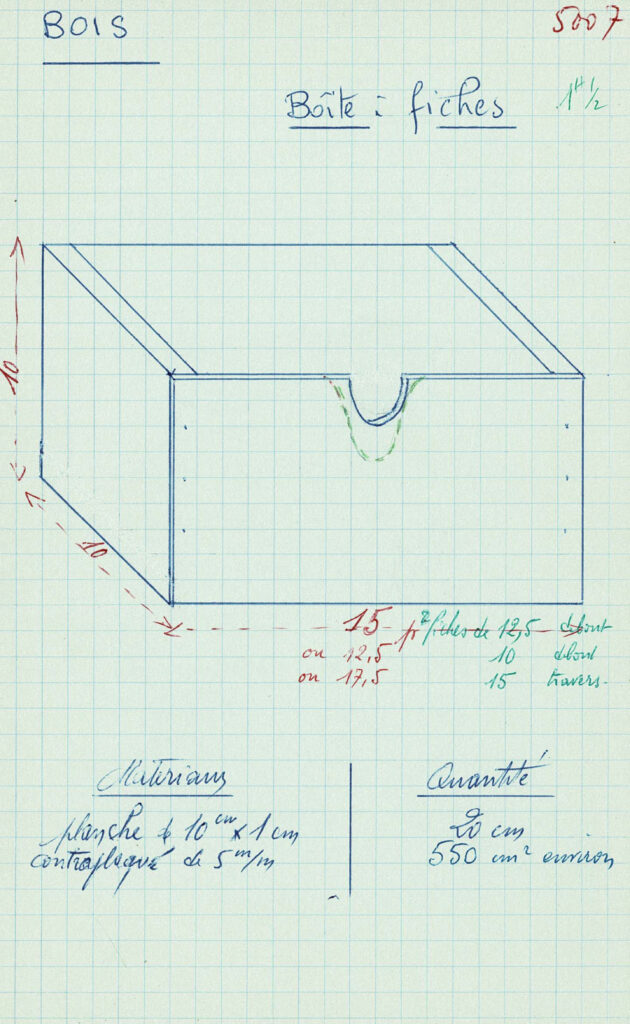 BOIS
5007
Boîte à fiches
1H 1/2
10
10
15 pr fiches de 12,5 debout
ou 12,5 10 debout
ou 17,5 15 travers.
Matériaux
Quantité
planche de 10 cm x 1 cm
20 cm
contreplaqué de 5 m/m
550 cm² environ